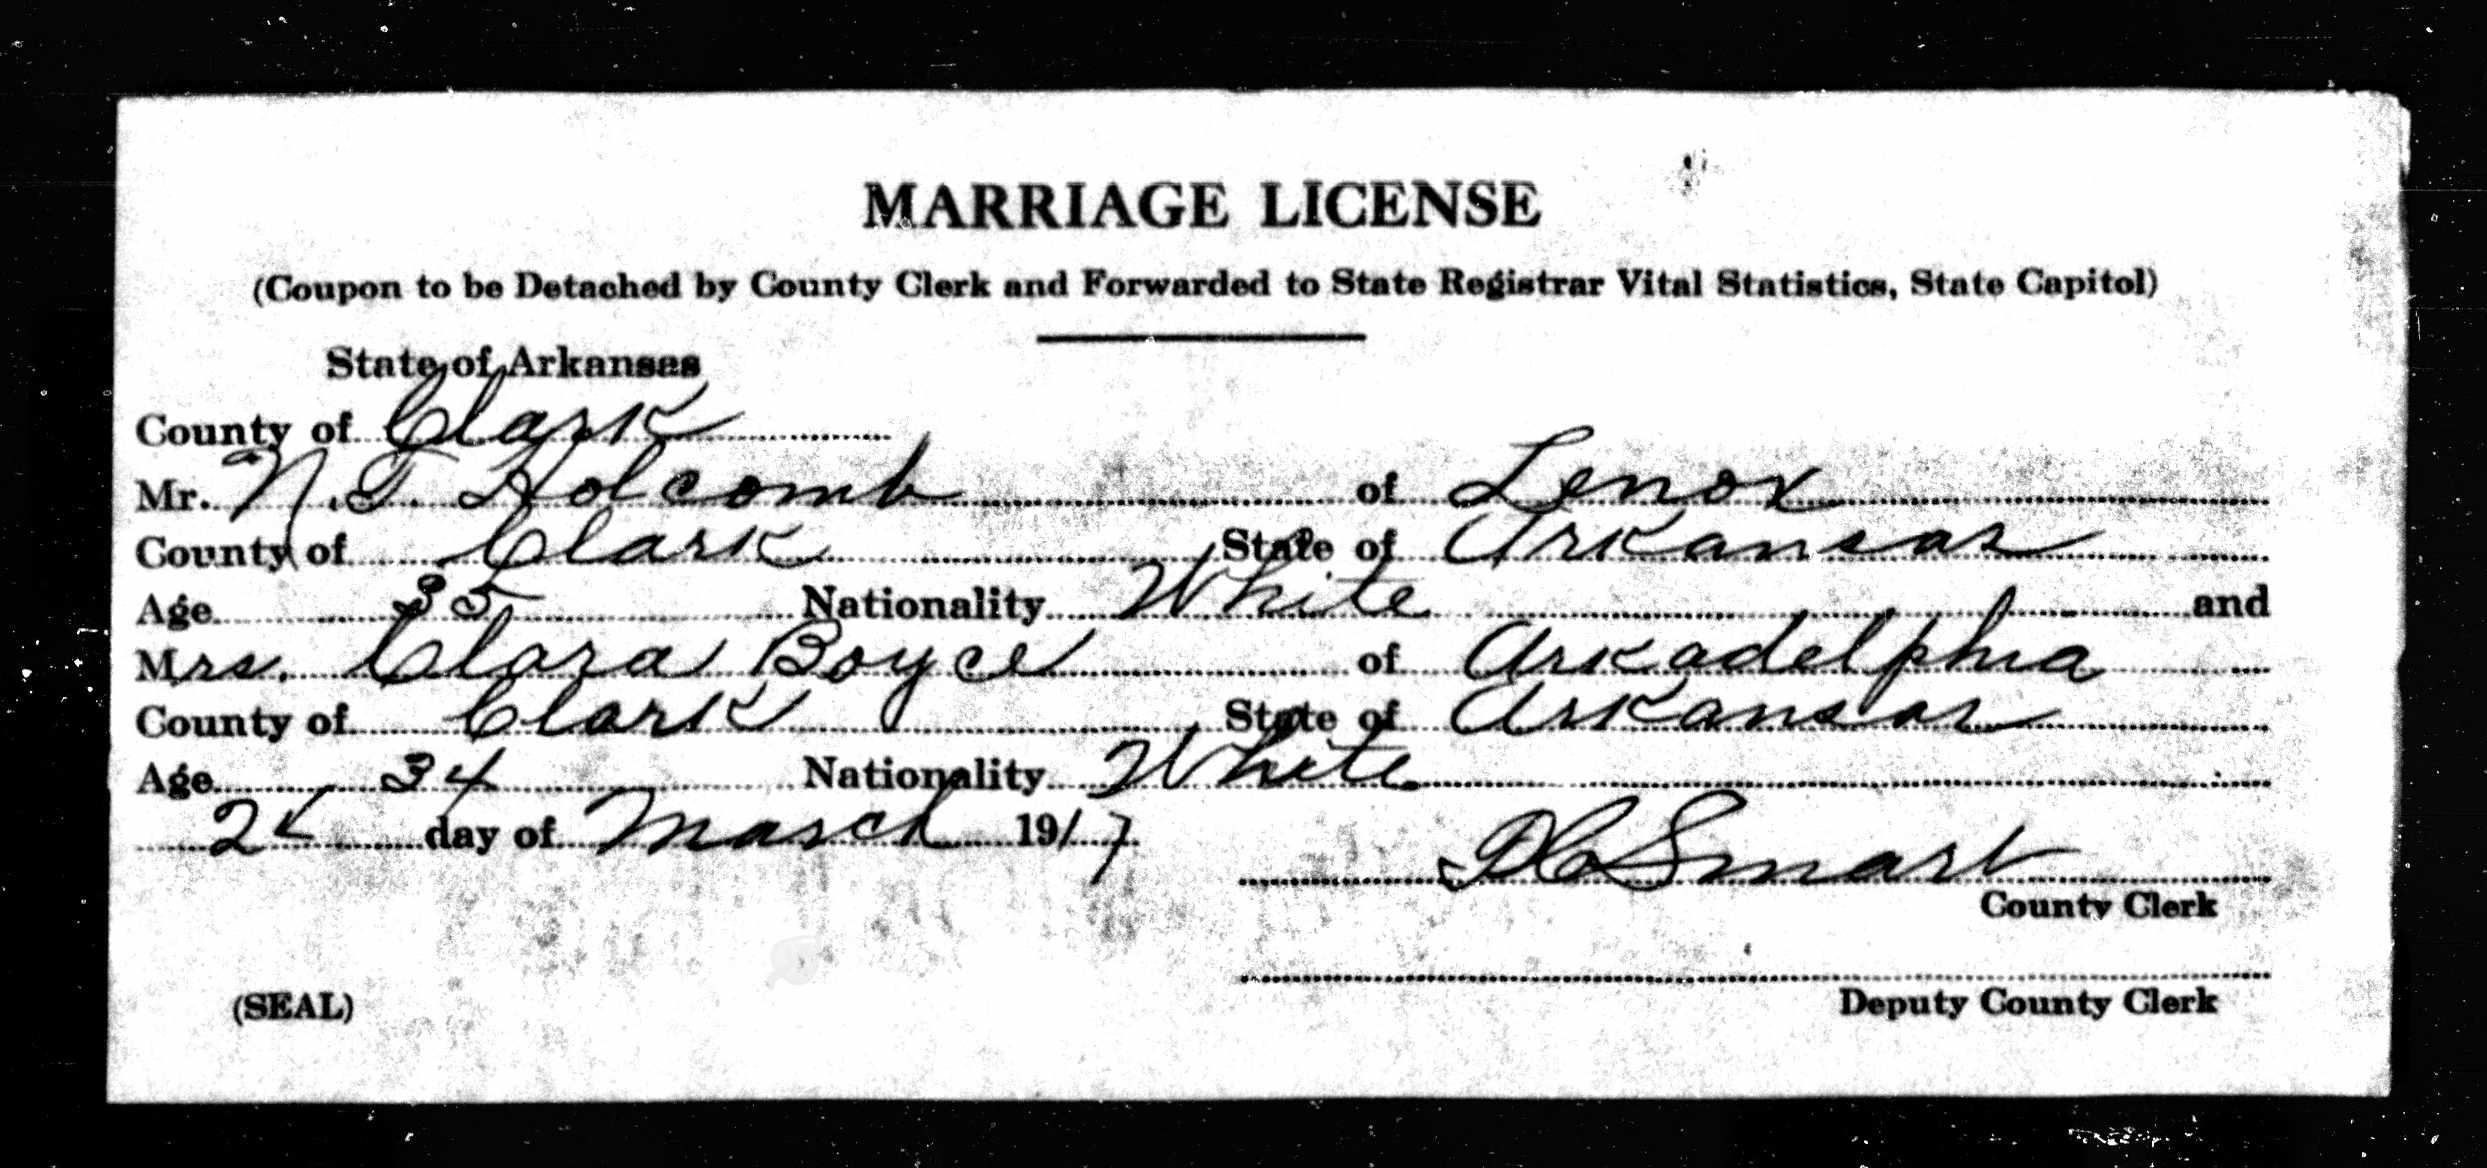 MARRIAGE LICENSE
(Coupon to be Detached by County Clerk and Forwarded to State Registrar Vital Statistics, State Capitol)
State of Arkansas
County of Clark
Mr. N. T. Holcomb of Lenox
County of Clark State of Arkansas
Age 35 Nationality White and
Mrs. Clara Boyce of Arkadelphia
County of Clark State of Arkansas
Age 34 Nationality White
24 day of March 1917
D C Smart
County Clerk
Deputy County Clerk
(SEAL)